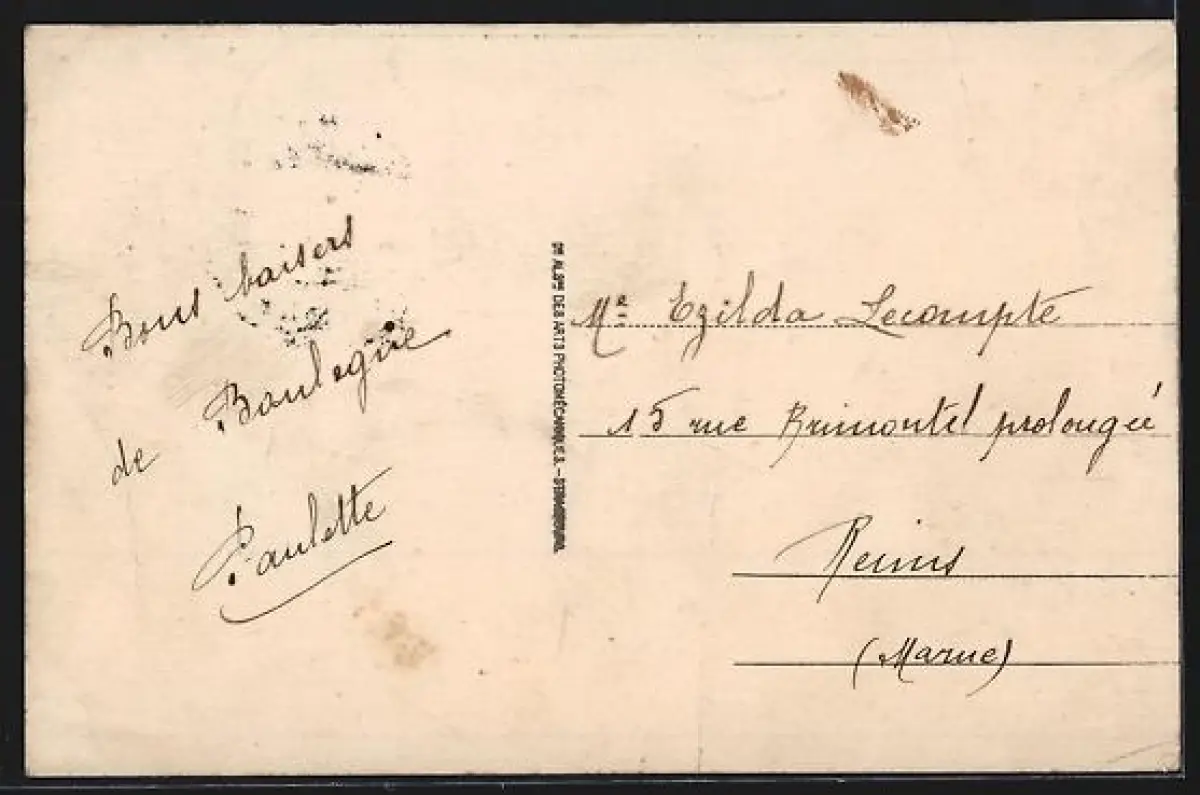 Bons baisers
de Boulogne
Paulette
Sté ALSnne DES ARTS PHOTOMÉCANIQUES. – STRASBOURG
Me Ezilda Lecompte
15 rue Brimontel prolongée
Reims
(Marne)